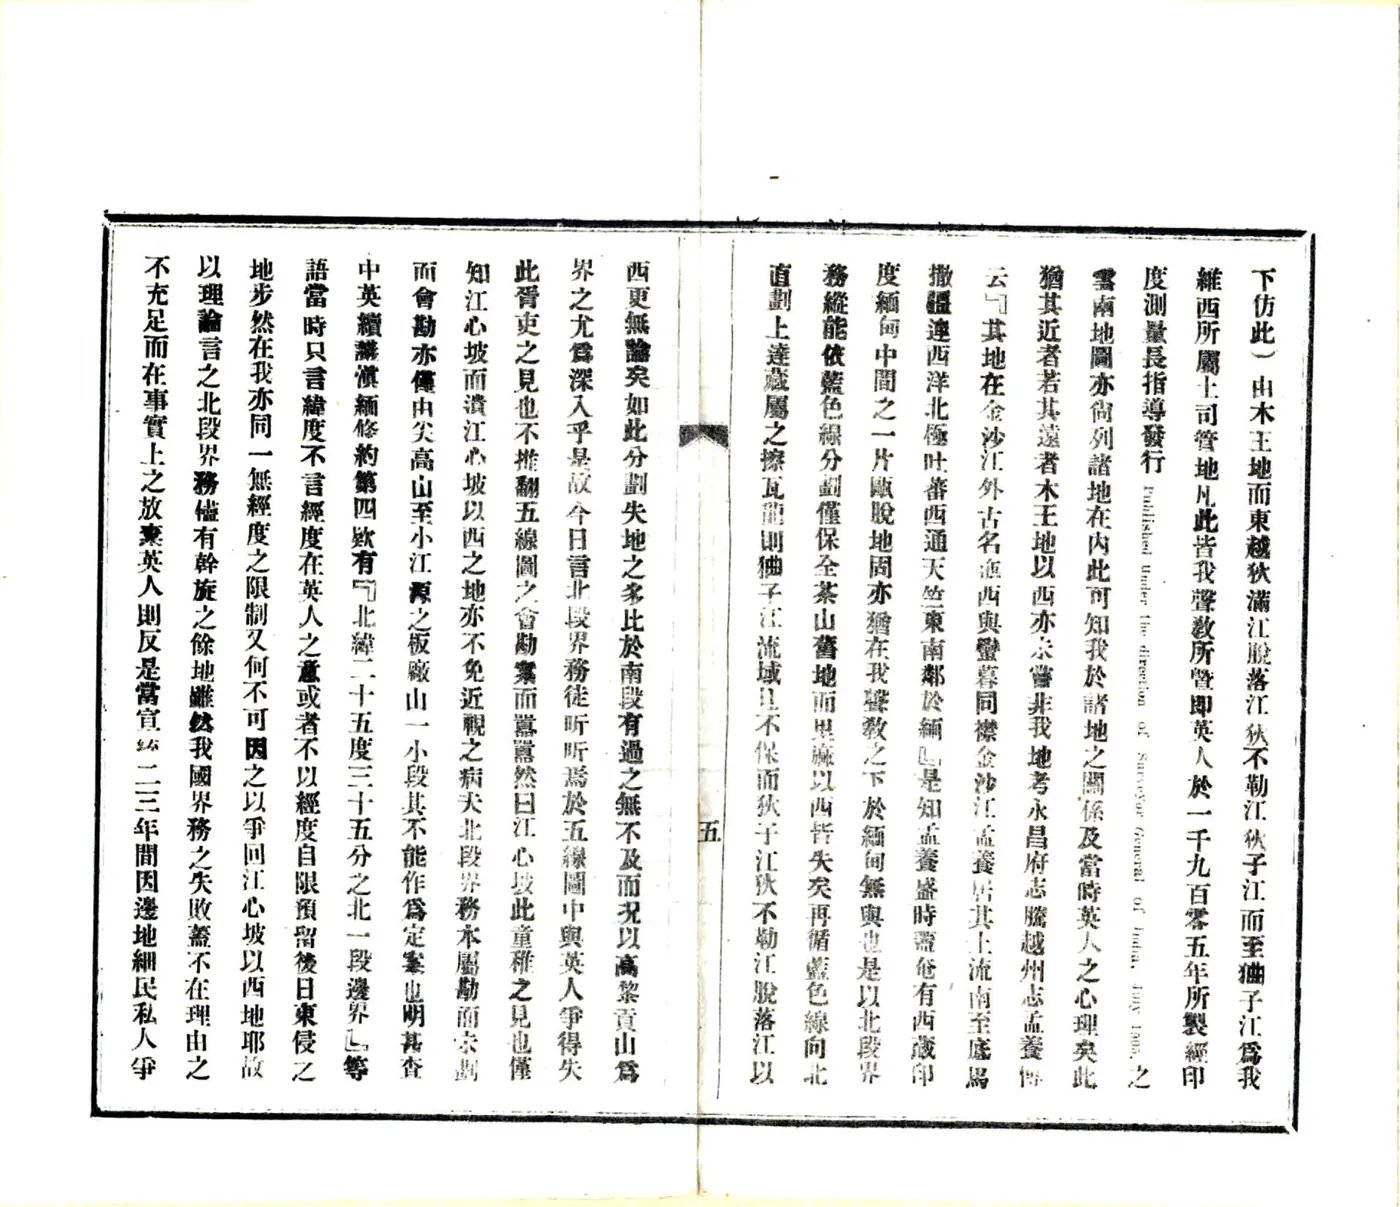 下仿此）由木王地而東越狄滿江脫落江狄不勒江狄子江而至㺄子江爲我
維西所屬土司管地凡此皆我聲敎所曁即英人於一千九百零五年所製經印
度測量長指導發行 Published under the direction of Surveyor General of India 之
雲南地圖亦尙列諸地在內此可知我於諸地之關係及當時英人之心理矣此
猶其近者若其遠者木王地以西亦未嘗非我地考永昌府志騰越州志孟養傳
云「其地在金沙江外古名迤西與蠻暮同襟金沙江孟養居其上流南至底馬
撒疆連西洋北極吐蕃西通天竺東南鄰於緬」是知孟養盛時蓋奄有西藏印
度緬甸中間之一片甌脫地固亦猶在我聲敎之下於緬甸無與也是以北段界
務縱能依藍色線分劃僅保全茶山舊地而里麻以西皆失矣再循藍色線向北
直劃上達藏屬之擦瓦龍則㺄子江流域且不保而狄子江狄不勒江脫落江以
五
西更無論矣如此分劃失地之多比於南段有過之無不及而況以高黎貢山爲
界之尤爲深入乎是故今日言北段界務徒昕昕焉於五線圖中與英人爭得失
此胥吏之見也不推翻五線圖之會勘案而囂囂然曰江心坡此童稚之見也僅
知江心坡而潰江心坡以西之地亦不免近視之病夫北段界務本屬勘而未劃
而會勘亦僅由尖高山至小江源之板廠山一小段其不能作爲定案也明甚查
中英續議滇緬修約第四欵有「北緯二十五度三十五分之北一段邊界」等
語當時只言緯度不言經度在英人之意或者不以經度自限預留後日東侵之
地步然在我亦同一無經度之限制又何不可因之以爭回江心坡以西地耶故
以理論言之北段界務儘有幹旋之餘地雖然我國界務之失敗蓋不在理由之
不充足而在事實上之放棄英人則反是當宣統二三年間因邊地細民私人爭